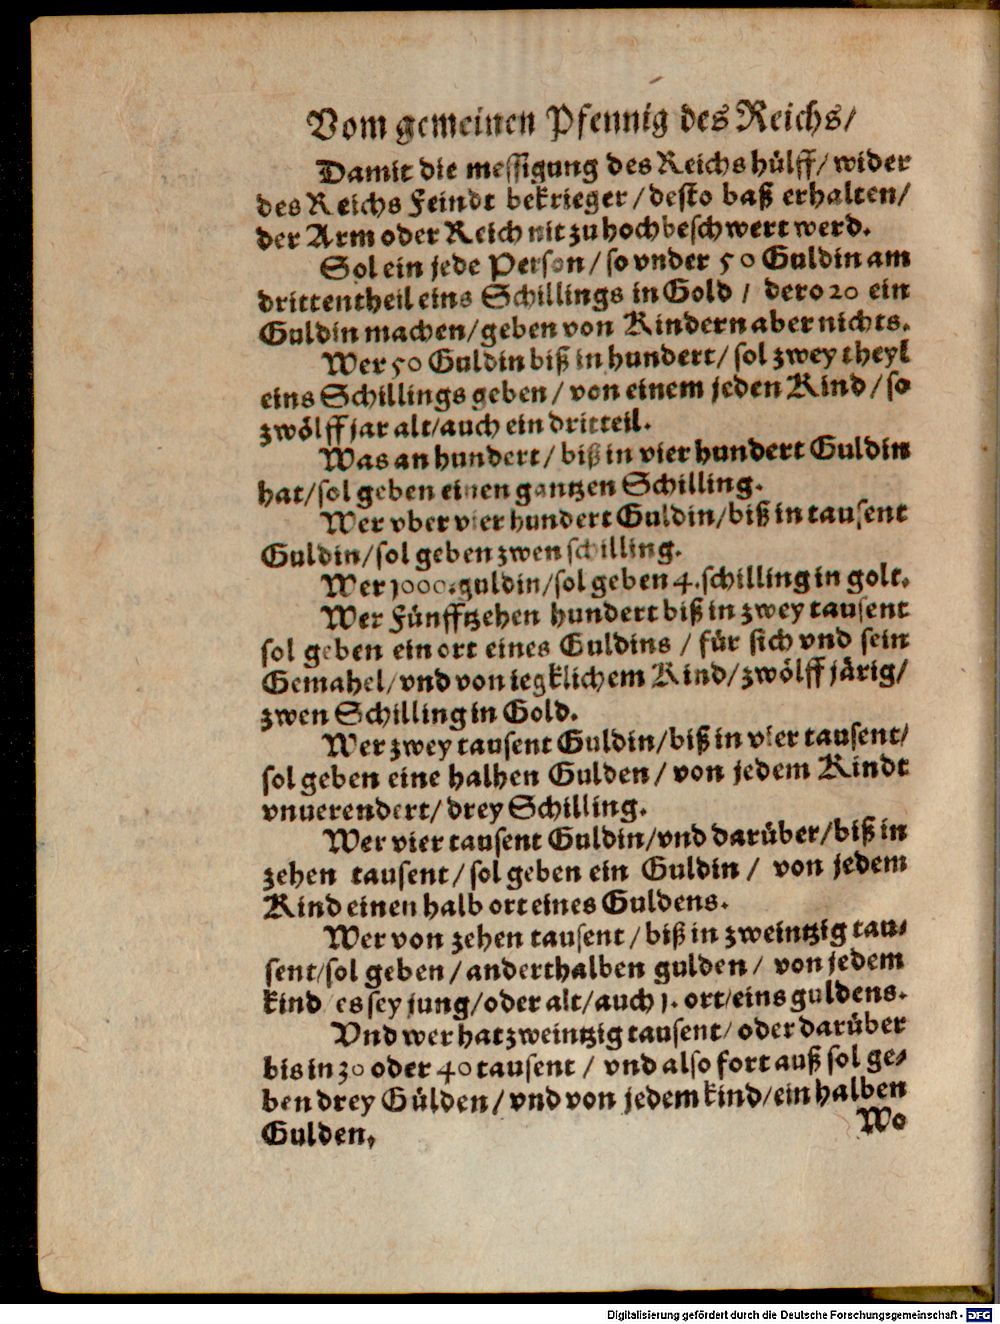 Vom gemeinen Pfennig des Reichs/
Damit die messigung des Reichs hülff/ wider
des Reichs Feindt bekrieger/ desto baß erhalten/
der Arm oder Reich nit zu hoch beschwert werd.
Sol ein jede Person/ so vnder 50 Guldin am
drittentheil eins Schillings in Gold/ dero 20 ein
Guldin machen/ geben von Kindern aber nichts.
Wer 50 Guldin biß in hundert/ sol zwey theyl
eins Schillings geben/ von einem jeden Kind/ so
zwölff jar alt/ auch ein dritteil.
Was an hundert/ biß in vier hundert Guldin
hat/ sol geben einen gantzen Schilling.
Wer vber vier hundert Guldin/ biß in tausent
Guldin/ sol geben zwen schilling.
Wer 1000. guldin/ sol geben 4. schilling in golt.
Wer Fünfftzehen hundert biß in zwey tausent
sol geben ein ort eines Guldins / für sich vnd sein
Gemahel/ vnd von iegklichem Kind/ zwölff järig/
zwen Schilling in Gold.
Wer zwey tausent Guldin/ biß in vier tausent/
sol geben eine halhen Gulden/ von jedem Kindt
vnuerendert/ drey Schilling.
Wer vier tausent Guldin/ vnd darüber/ biß in
zehen tausent/ sol geben ein Guldin / von jedem
Kind einen halb ort eines Guldens.
Wer von zehen tausent/ biß in zweintzig tau⸗
sent/ sol geben/ anderthalben gulden/ von jedem
kind es sey jung/ oder alt/ auch 1. ort/ eins guldens.
Vnd wer hat zweintzig tausent/ oder darüber
bis in 30 oder 40 tausent / vnd also fort auß sol ge⸗
ben drey Gülden/ vnd von jedem kind/ ein halben
Gulden,
Wo
Digitalisierung gefördert durch die Deutsche Forschungsgemeinschaft - DFG